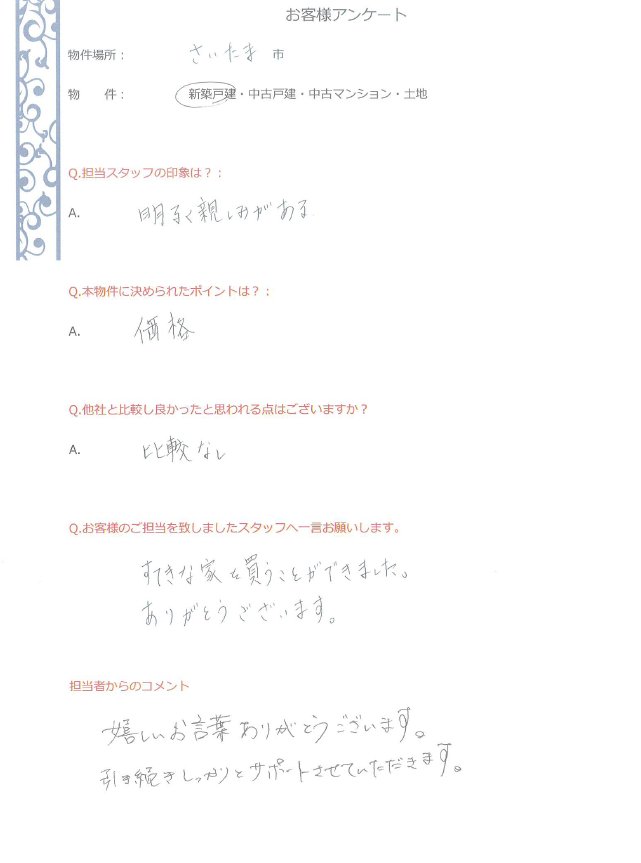 お客様アンケート
物件場所： さいたま 市
物　件： 新築戸建・中古戸建・中古マンション・土地
Q.担当スタッフの印象は？：
A. 明るく親しみがある
Q.本物件に決められたポイントは？：
A. 価格
Q.他社と比較し良かったと思われる点はございますか？
A. 比較なし
Q.お客様のご担当を致しましたスタッフへ一言お願いします。
すてきな家を買うことができました。
ありがとうございます。
担当者からのコメント
嬉しいお言葉ありがとうございます。
引き続きしっかりとサポートさせていただきます。